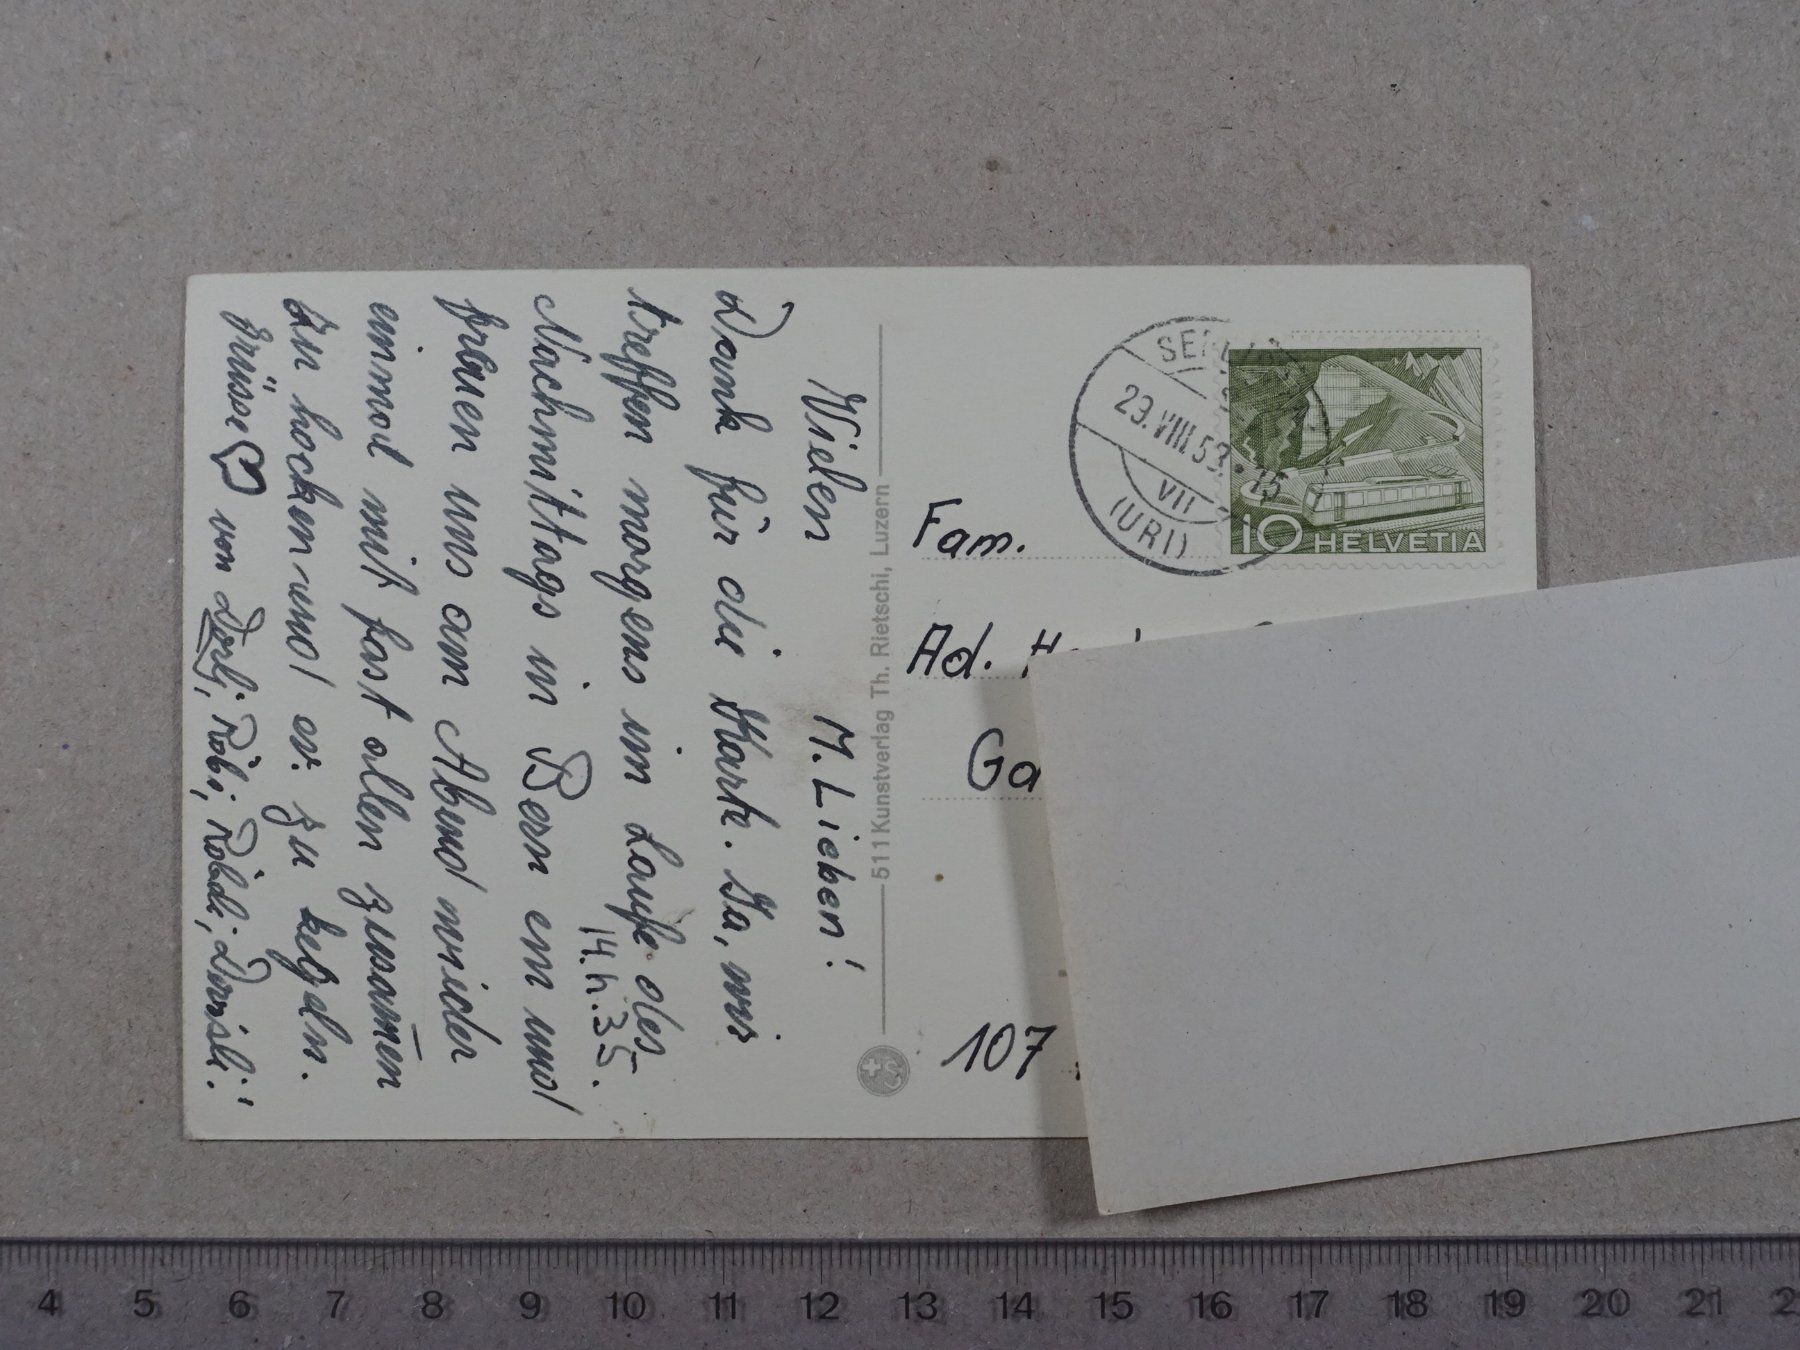 M. Lieben! Vielen
Dank für die Karte. Ja, wir
treffen morgens im Laufe des
14.h.35.
Nachmittags in Bern ein und
freuen uns am Abend wieder
einmal mit fast allen zusam̄en
zu hocken und ev. zu kegeln.
Grüsse ♡ von Dorlj, Röbi, Röbeli, Dorisli!
511 Kunstverlag Th. Rietschi, Luzern
(URI)
29.VIII.53. 15
VII
10 HELVETIA
Fam.
Ad.
Ga
107
4 5 6 7 8 9 10 11 12 13 14 15 16 17 18 19 20 21